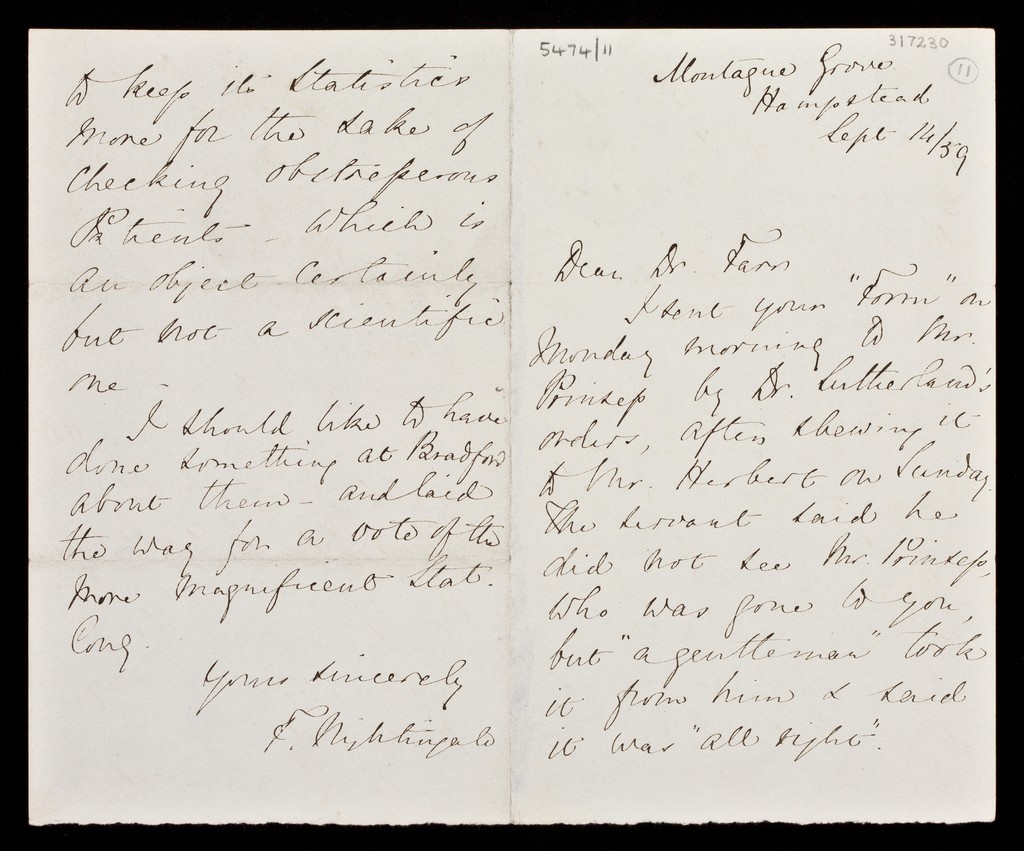 5474/11
317230
11
Montague Grove
Hampstead
Sept 14/59
Dear Dr. Farr
I sent your "Form" on
Monday morning to Mr.
Prinsep by Dr. Sutherland's
orders, after shewing it
to Mr. Herbert on Sunday.
The servant said he
did not see Mr. Prinsep,
who was gone to you,
but "a gentleman" took
it from him & said
it was "all right".
to keep its Statistics
more for the sake of
checking obstreperous
Patients - which is
an object certainly
but not a scientific
one -
I should like to have
done something at Bradford
about them - and laid
the way for a vote of the
more magnificent Stat.
Cong.
Yours sincerely
F. Nightingale